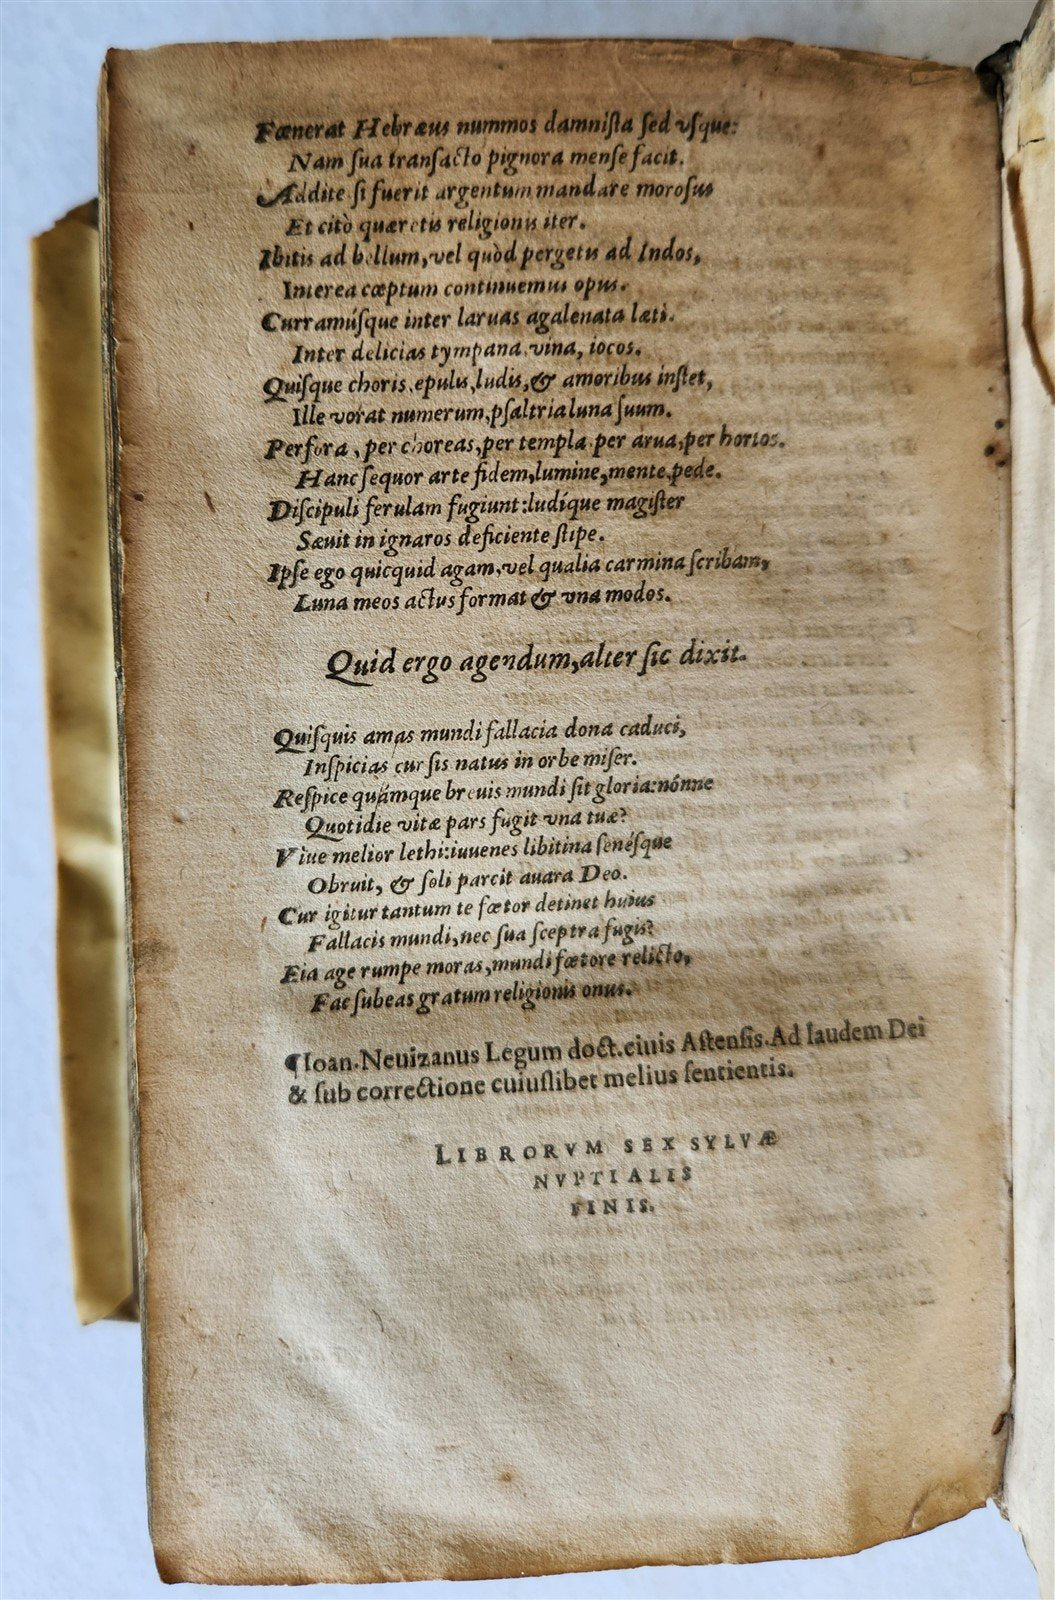 Fœnerat Hebræus nummos damnista sed vsque:
Nam sua transacto pignora mense facit.
Addite si fuerit argentum mandare morosus
Et citò quæretis religionis iter.
Ibitis ad bellum, vel quòd pergetis ad Indos,
Interea cœptum continuemus opus.
Curramúsque inter laruas agalenata læti.
Inter delicias tympana, vina, iocos.
Quisque choris, epulis, ludis, & amoribus instet,
Ille vorat numerum, psaltria luna suum.
Per fora, per choreas, per templa, per arua, per hortos.
Hanc sequor arte fidem, lumine, mente, pede.
Discipuli ferulam fugiunt: ludíque magister
Sæuit in ignaros deficiente stipe.
Ipse ego quicquid agam, vel qualia carmina scribam,
Luna meos actus format & vna modos.
Quid ergo agendum, alter sic dixit.
Quisquis amas mundi fallacia dona caduci,
Inspicias cur sis natus in orbe miser.
Respice quámque breuis mundi sit gloria: nónne
Quotidie vitæ pars fugit vna tuæ?
Viue melior lethi: iuuenes libitina senésque
Obruit, & soli parcit auara Deo.
Cur igitur tantum te fœtor detinet huius
Fallacis mundi, nec sua sceptra fugis?
Eia age rumpe moras, mundi fœtore relicto,
Fac subeas gratum religionis onus.
¶Ioan. Neuizanus Legum doct. ciuis Astensis. Ad laudem Dei
& sub correctione cuiuslibet melius sentientis.
LIBRORVM SEX SYLVÆ
NVPTIALIS
FINIS.